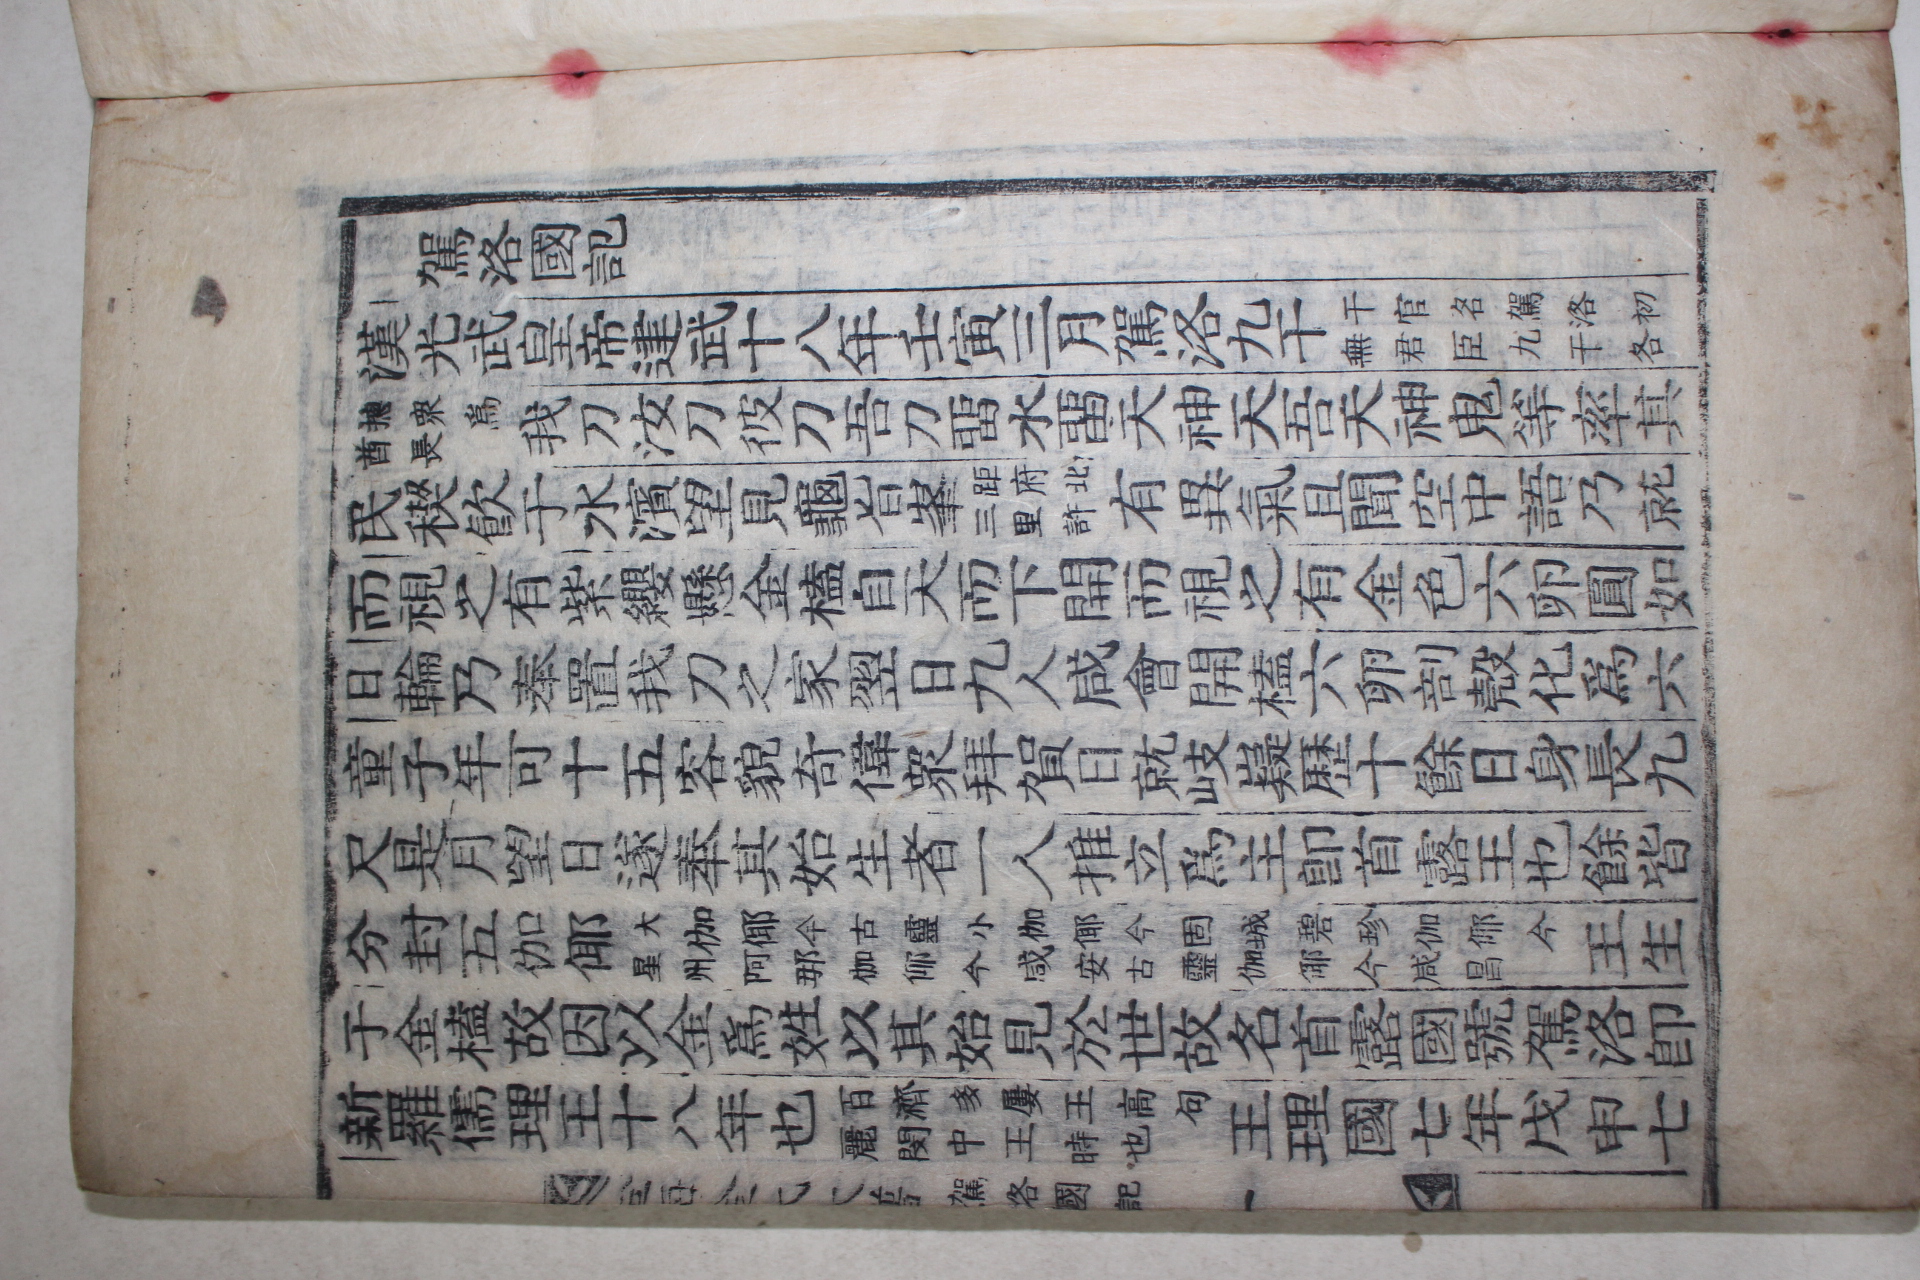 駕洛國記
漢光武皇帝建武十八年壬寅三月駕洛九干干官名駕洛初無君臣九干各
摠衆爲酋長我刀汝刀彼刀吾刀畱水畱天神天吾天神鬼等率其
民稧飮于水濱望見龜旨峯距府北三里許有異氣且聞空中語乃就
而視之有紫纓懸金榼自天而下開而視之有金色六卵圓如
日輪乃奉置我刀之家翌日九人咸會開榼六卵剖殼化爲六
童子年可十五容貌奇偉衆拜賀日就岐嶷歷十餘日身長九
尺是月望日遂奉其始生者一人推立爲主卽首露王也餘皆
分封五伽倻大伽倻今古靈小伽倻今固城碧珍伽倻今星州阿那伽倻今咸安古靈伽倻今咸昌王生
于金榼故因以金爲姓以其始見於世故名首露國號駕洛卽
新羅儒理王十八年也百濟多婁王高句麗閔中王時也王理國七年戊申七
金海金氏大譜 駕洛國記 一